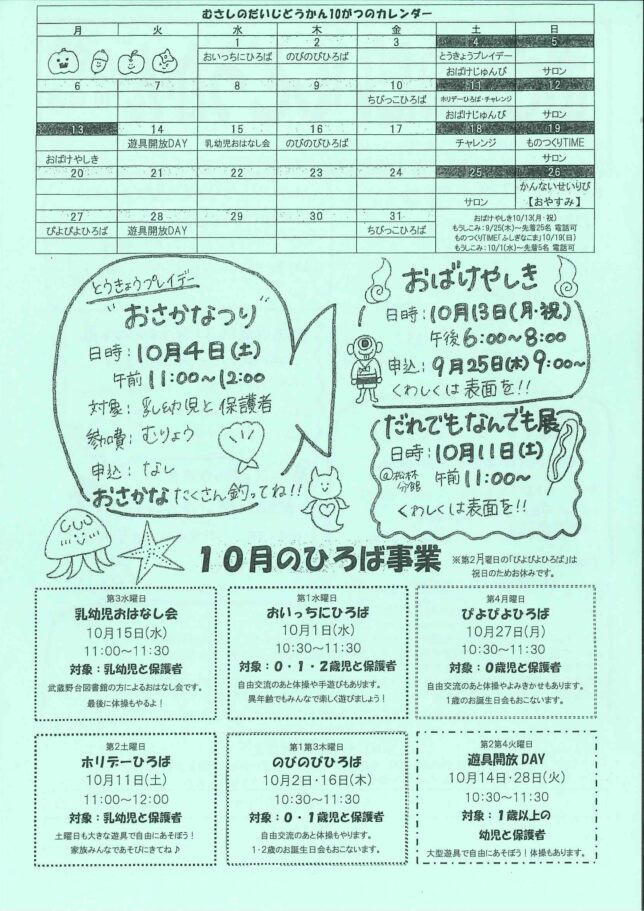 むさしのだいじどうかん10がつのカレンダー
月 火 水 木 金 土 日
1 2 3 4 5
おいっちにひろば のびのびひろば とうきょうプレイデー
おばけじゅんび サロン
6 7 8 9 10 11 12
ちびっこひろば ホリデーひろば・チャレンジ
おばけじゅんび サロン
13 14 15 16 17 18 19
遊具開放DAY 乳幼児おはなし会 のびのびひろば チャレンジ ものつくりTIME
おばけやしき サロン
20 21 22 23 24 25 26
かんないせいりび
サロン 【おやすみ】
27 28 29 30 31
ぴよぴよひろば 遊具開放DAY ちびっこひろば
おばけやしき10/13(月・祝)
もうしこみ:9/25(木)~先着25名 電話可
ものつくりTIME「ふしぎなこま」10/19(日)
もうしこみ:10/1(水)~先着5名 電話可
とうきょうプレイデー
"おさかなつり"
日時:10月4日(土)
午前11:00~12:00
対象:乳幼児と保護者
参加費:むりょう
申込:なし
おさかなたくさん釣ってね!!
おばけやしき
日時:10月13日(月・祝)
午後6:00~8:00
申込:9月25日(木)9:00~
くわしくは表面を!!
だれでもなんでも展
日時:10月11日(土)
@松林分館 午前11:00~
くわしくは表面を!!
10月のひろば事業
※第2月曜日の「ぴよぴよひろば」は
祝日のためお休みです。
第3水曜日
乳幼児おはなし会
10月15日(水)
11:00~11:30
対象:乳幼児と保護者
武蔵野台図書館の方によるおはなし会です。
最後に体操もやるよ!
第1水曜日
おいっちにひろば
10月1日(水)
10:30~11:30
対象:0・1・2歳児と保護者
自由交流のあと体操や手遊びもあります。
異年齢でもみんなで楽しく遊びましょう!
第4月曜日
ぴよぴよひろば
10月27日(月)
10:30~11:30
対象:0歳児と保護者
自由交流のあと体操やよみきかせもあります。
1歳のお誕生日会もおこないます。
第2土曜日
ホリデーひろば
10月11日(土)
11:00~12:00
対象:乳幼児と保護者
土曜日も大きな遊具で自由にあそぼう!
家族みんなであそびにきてね♪
第1第3木曜日
のびのびひろば
10月2日・16日(木)
10:30~11:30
対象:0・1歳児と保護者
自由交流のあと体操もやります。
1・2歳のお誕生日会もおこないます。
第2第4火曜日
遊具開放DAY
10月14日・28日(火)
10:30~11:30
対象:1歳以上の
幼児と保護者
大型遊具で自由にあそぼう!体操もあります。